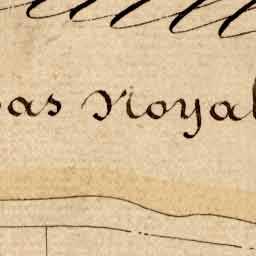 as Noyal